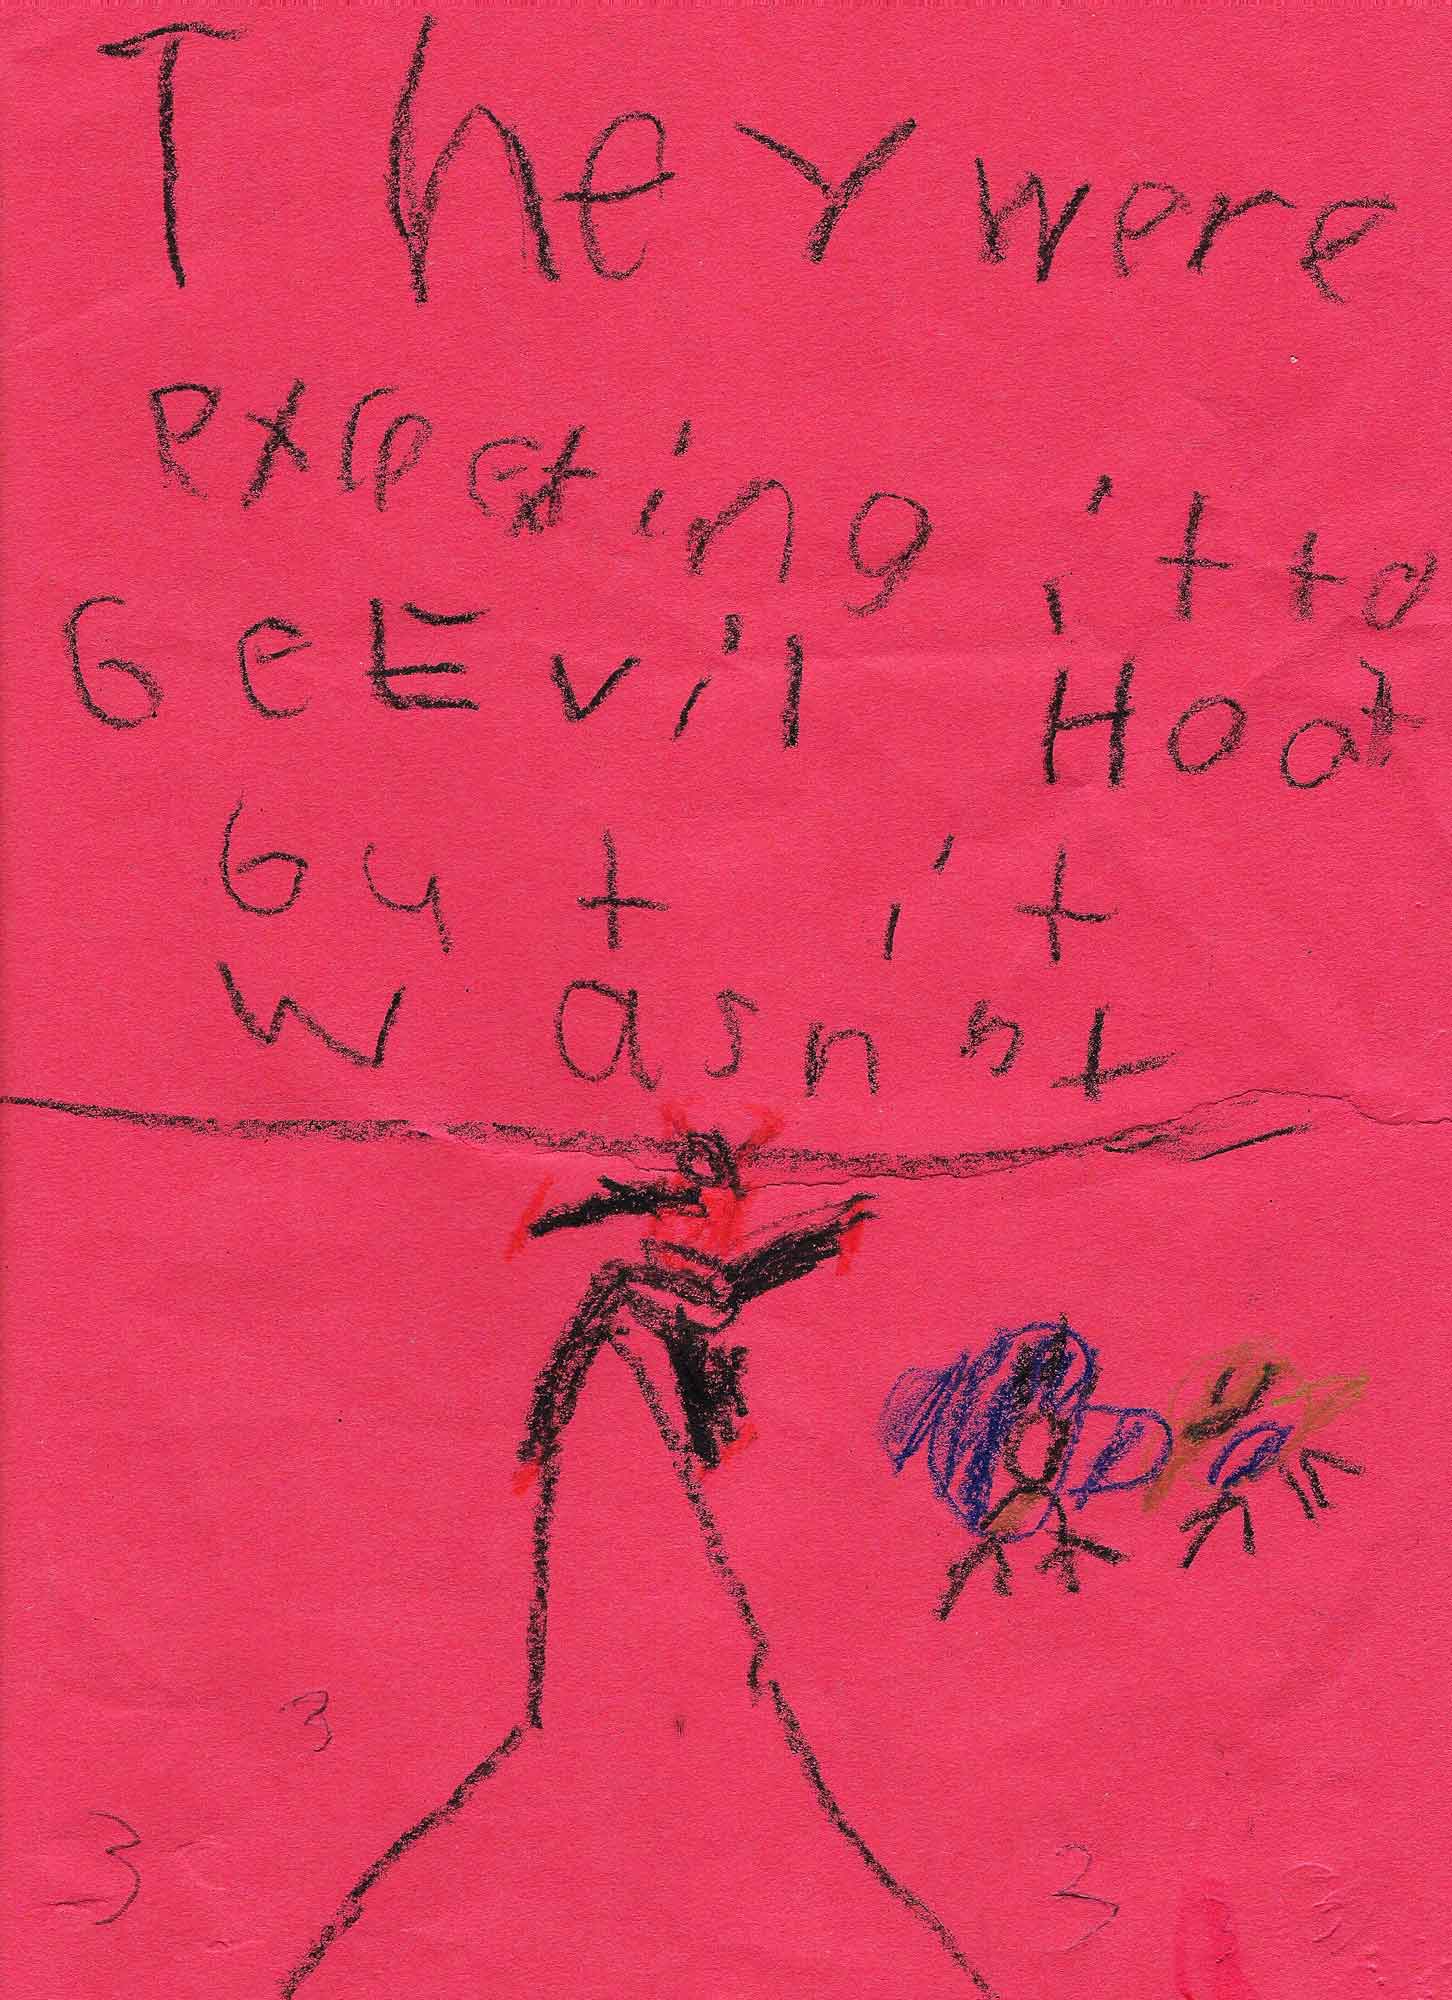 They were
expecting it to
be Evil Hoot
but it
wasnst
3
3 3